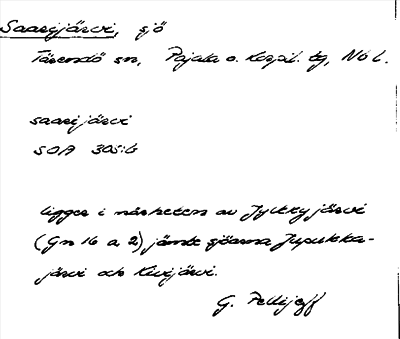 Saarijärvi, sjö
Tärendö sn, Pajala o. Korpil. tg, Nbl.
saarijärvi
SOA 305:6
ligger i närheten av Jyrkkyjärvi
(Gn 16 a 2) jämte sjöarna Jupukka-
järvi och Kivijärvi.
G. Pellijeff